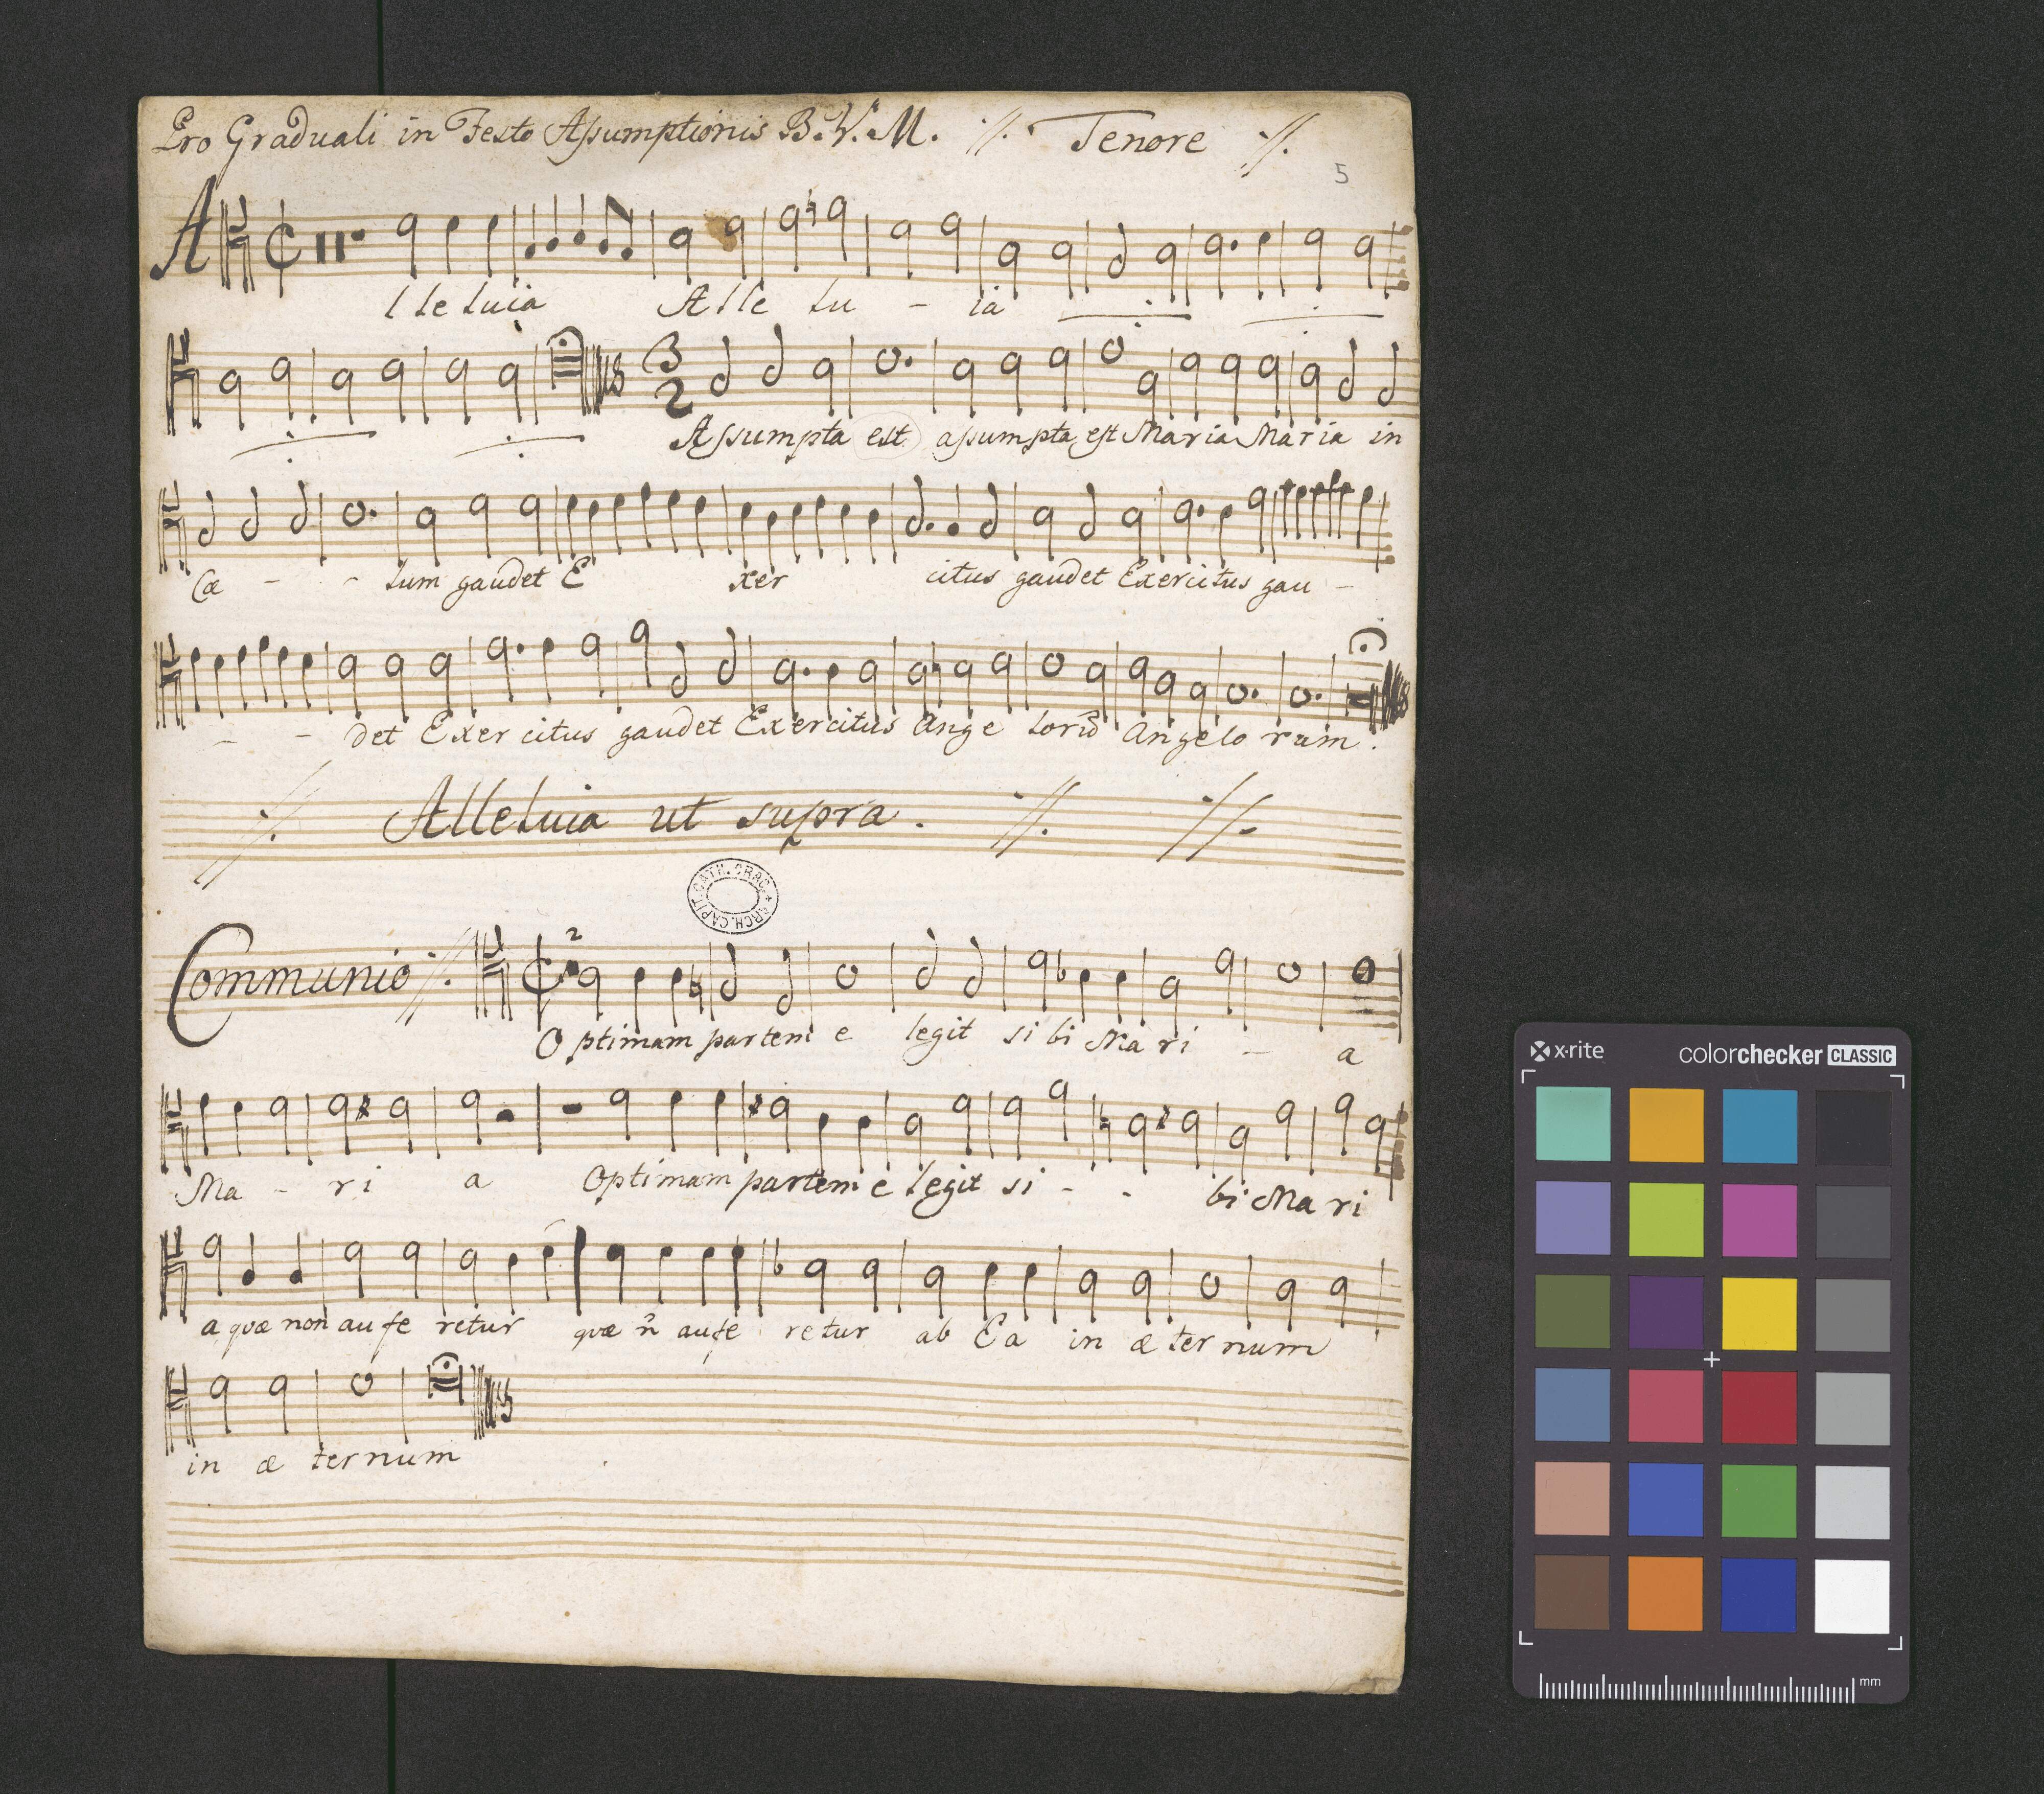 Pro Graduali in Festo Assumptionis B. V. M. Tenore
5
A
lleluia Alle lu - ia
3
2
Assumpta est assumpta est Maria Maria in
Cæ - - lum gaudet E xer citus gaudet Exercitus gau -
- - det Exercitus gaudet Exercitus Ange lorũ Angelo rum.
Alleluia ut supra.
ARCH. CAPIT. CATH. CRAC.
Communio
2
Optimam partem e legit sibi Ma ri - a
Ma - ri a Optimam partem e legit si - - bi Ma ri
a quæ non aufe retur quæ ñ aufe retur ab Ea in æ ternum
in æ ternum
x-rite colorchecker CLASSIC
mm